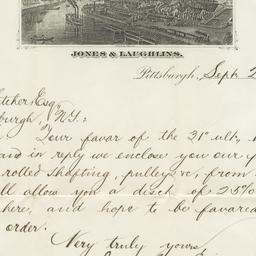 JONES & LAUGHLINS.
Pittsburgh, Sept. 2
tcher Esq
sburgh, N.Y.:
Your favor of the 21" ult,
and in reply we enclose you our
rotted Shafting, pulleys &c, from
ll allow you a disct of 25%
here, and hope to be favored
order.
Very truly yours,